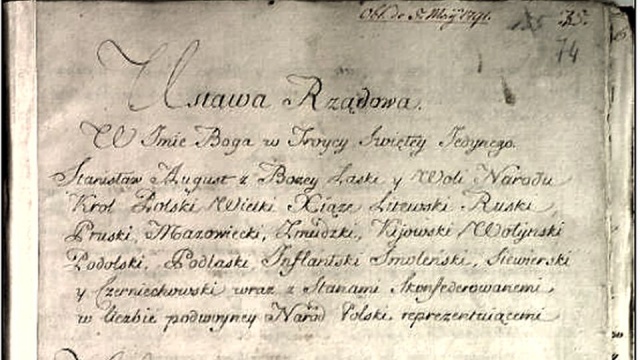 Obl. de 5. Maij 1791.
35.
74
Ustawa Rządowa.
W Imie Boga w Troycy Swiętey Jedynego.
Stanisław August z Bożey Łaski y Woli Narodu
Krol Polski Wielki Xiąże Litewski Ruski
Pruski, Mazowiecki, Zmudzki, Kijowski Wołyński
Podolski, Podlaski, Inflantski Smolenski, Siewierski
y Czerniechowski wraz z Stanami Skonfederowanemi
w liczbie podwoyney Naród Polski reprezentuiącemi